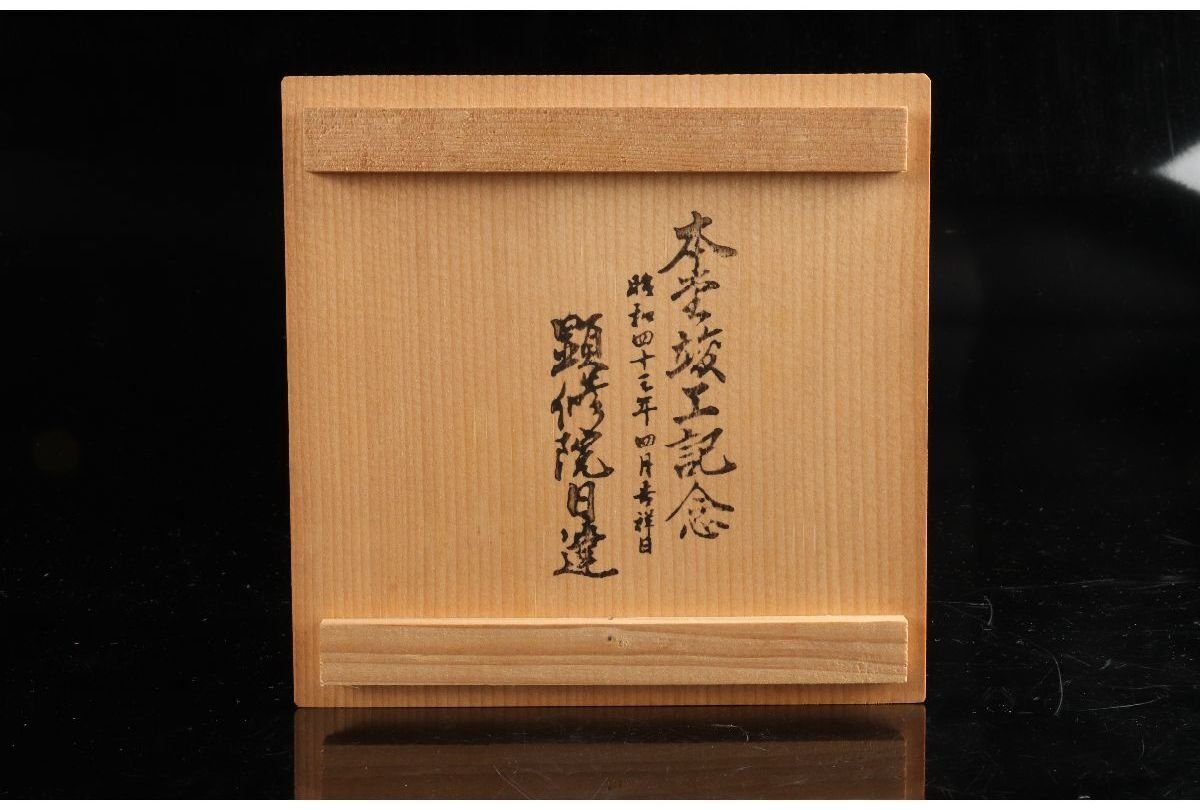 本堂竣工記念
昭和四十三年四月吉祥日
顕修院日達